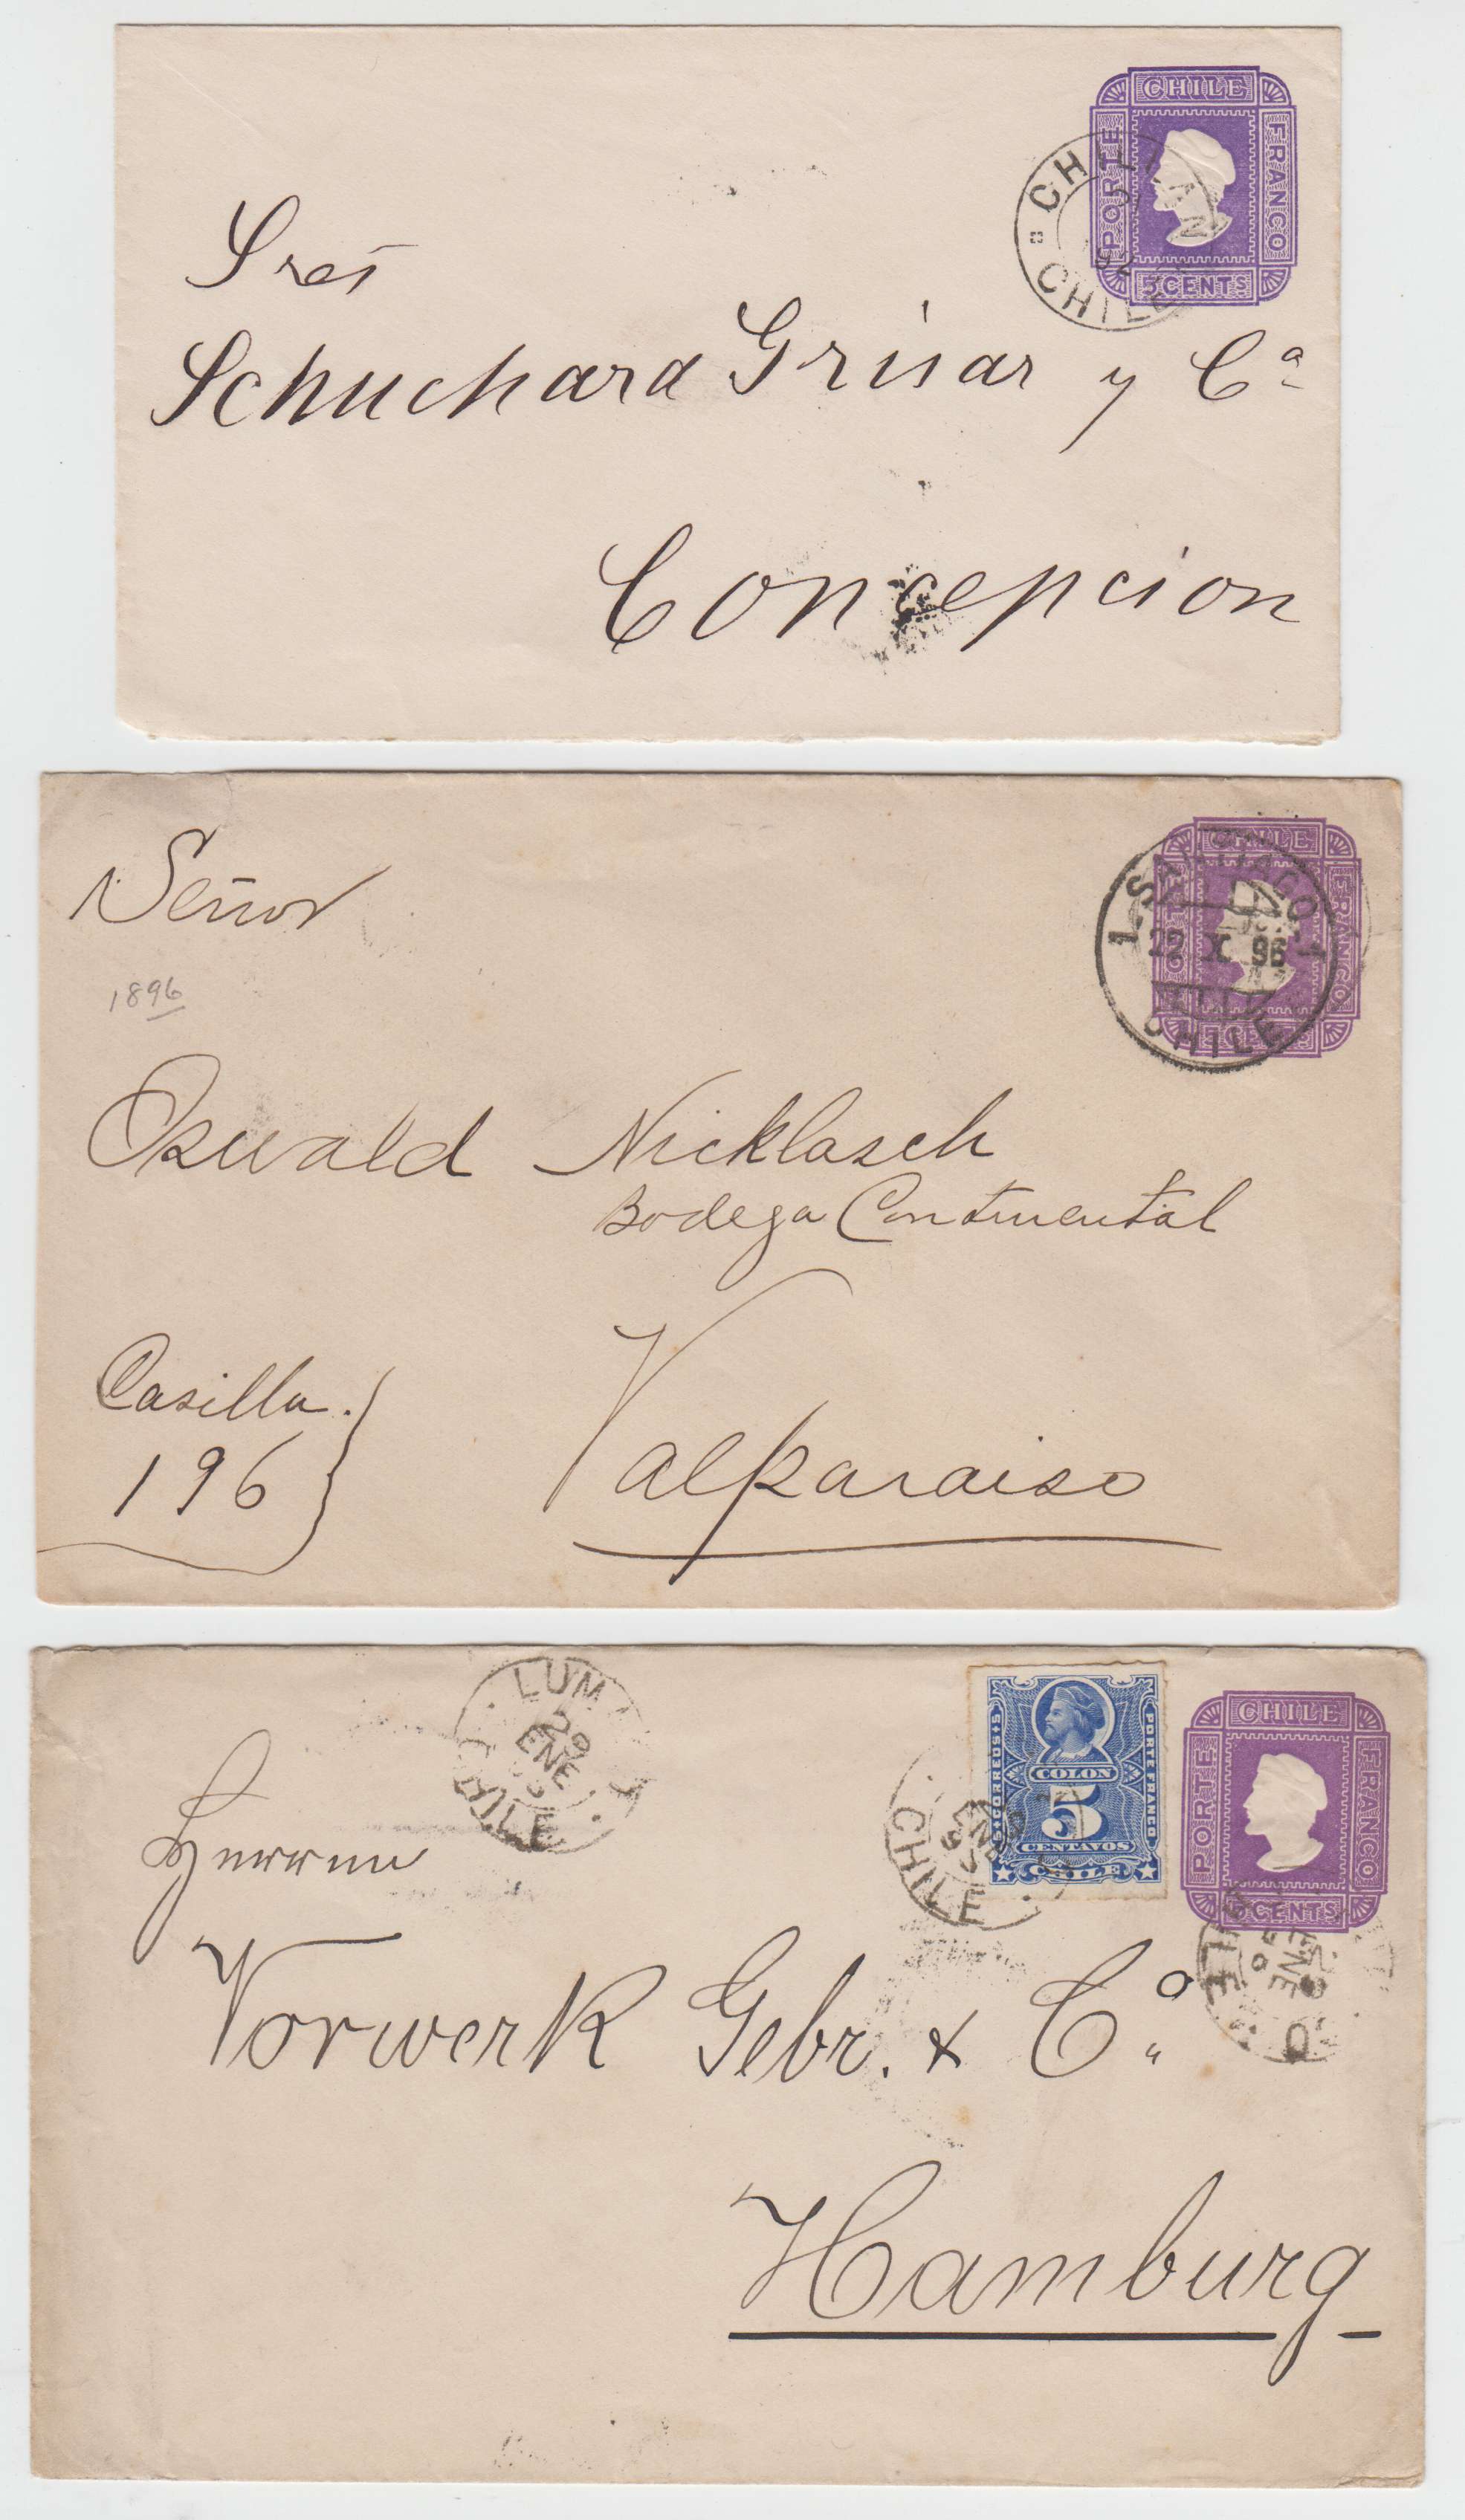 CHILE
PORTE
FRANCO
5CENTS
CHILLAN
92
CHILE
Sres
Schuchard Grisar y Cª
Concepcion
CHILE
FRANCO
1. SANTIAGO. 1
22 X 96
CHILE
Señor
1896
Oswald Nicklasch
Bodega Continental
Casilla.
196
Valparaiso
LUM
29
ENE
CHILE
CORREOS
PORTE FRANCO
COLON
5
CENTAVOS
CHILE
CHILE
CHILE
PORTE
FRANCO
5CENTS
ENE
Herren
Vorwerk Gebr. & Co.
Hamburg